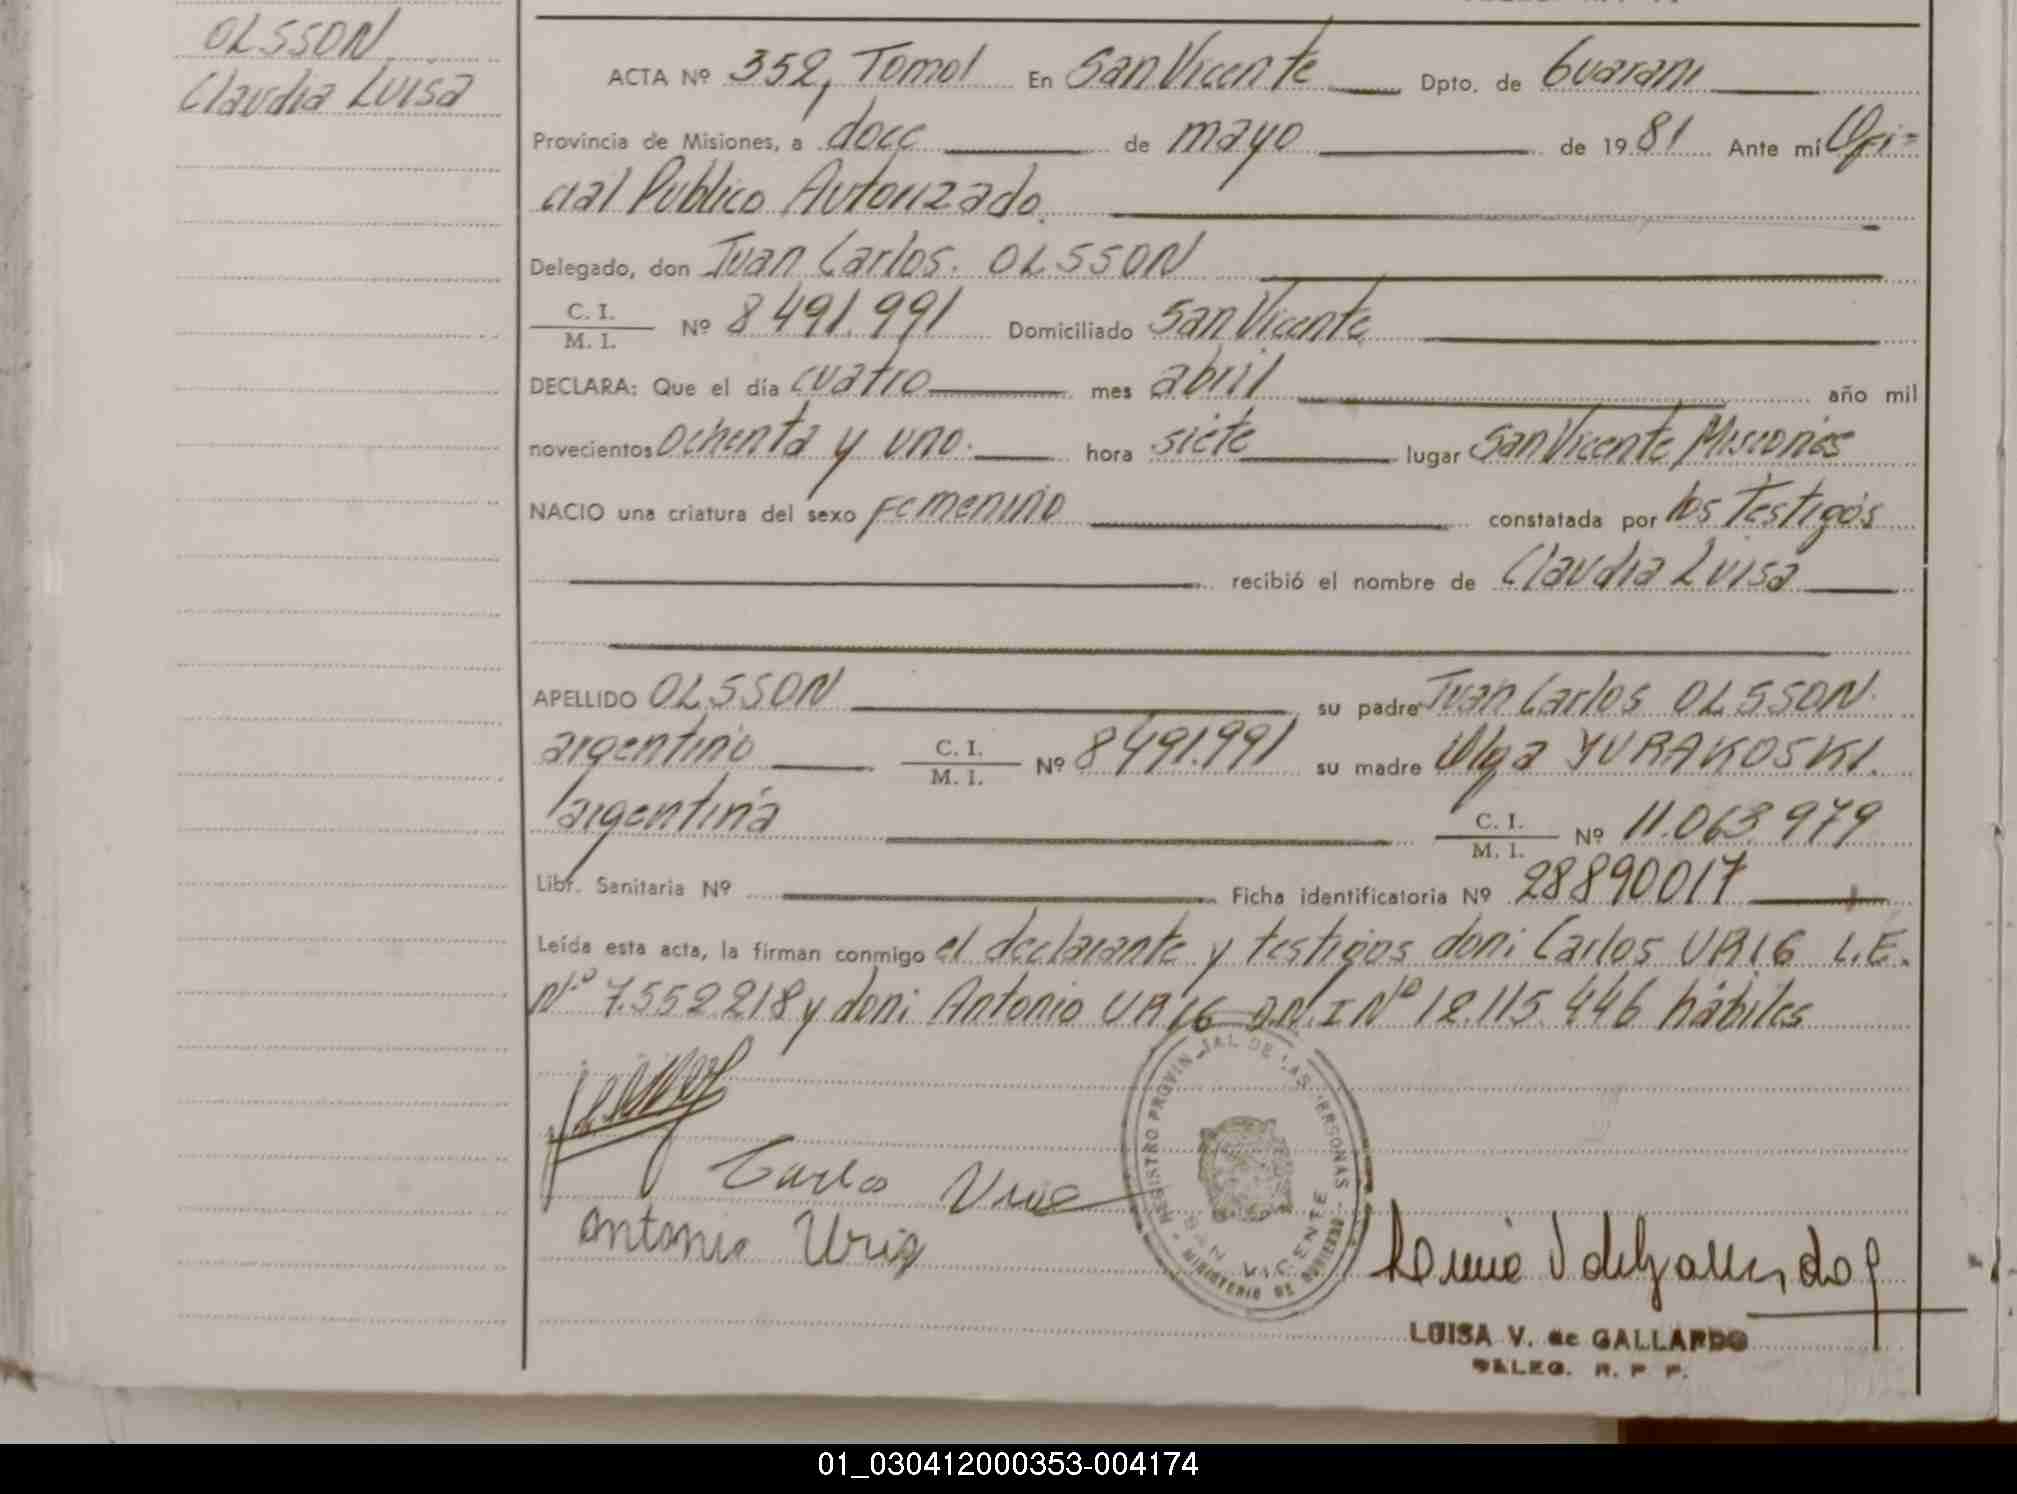 OLSSON
Claudia Luisa
ACTA Nº 352, Tomo I En San Vicente Dpto. de Guarani
Provincia de Misiones, a doce de mayo de 1981 Ante mí Ofi-
cial Publico Autorizado.
Delegado, don Juan Carlos. OLSSON
C. I.
M. I. Nº 8491.991 Domiciliado San Vicente
DECLARA: Que el día cuatro mes abril año mil
novecientos ochenta y uno. hora siete lugar San Vicente Misiones
NACIO una criatura del sexo femenino constatada por los testigos
recibió el nombre de Claudia Luisa
APELLIDO OLSSON su padre Juan Carlos OLSSON.
argentino C. I.
M. I. Nº 8491.991 su madre Olga YURAKOSKI.
argentina C. I.
M. I. Nº 11.063.979
Libr. Sanitaria Nº Ficha identificatoria Nº 28890017
Leída esta acta, la firman conmigo el declarante y testigos don: Carlos URIG L.E.
Nº 7.552.218 y don: Antonio URIG D.N.I Nº 12.115.446 hábiles
Carlos
Antonio Urig
REGISTRO PROVINCIAL DE LAS PERSONAS
SAN VICENTE
MINISTERIO DE GOBIERNO
V de Gallardo
LUISA V. de GALLARDO
DELEG. R. P. P.
01_030412000353-004174